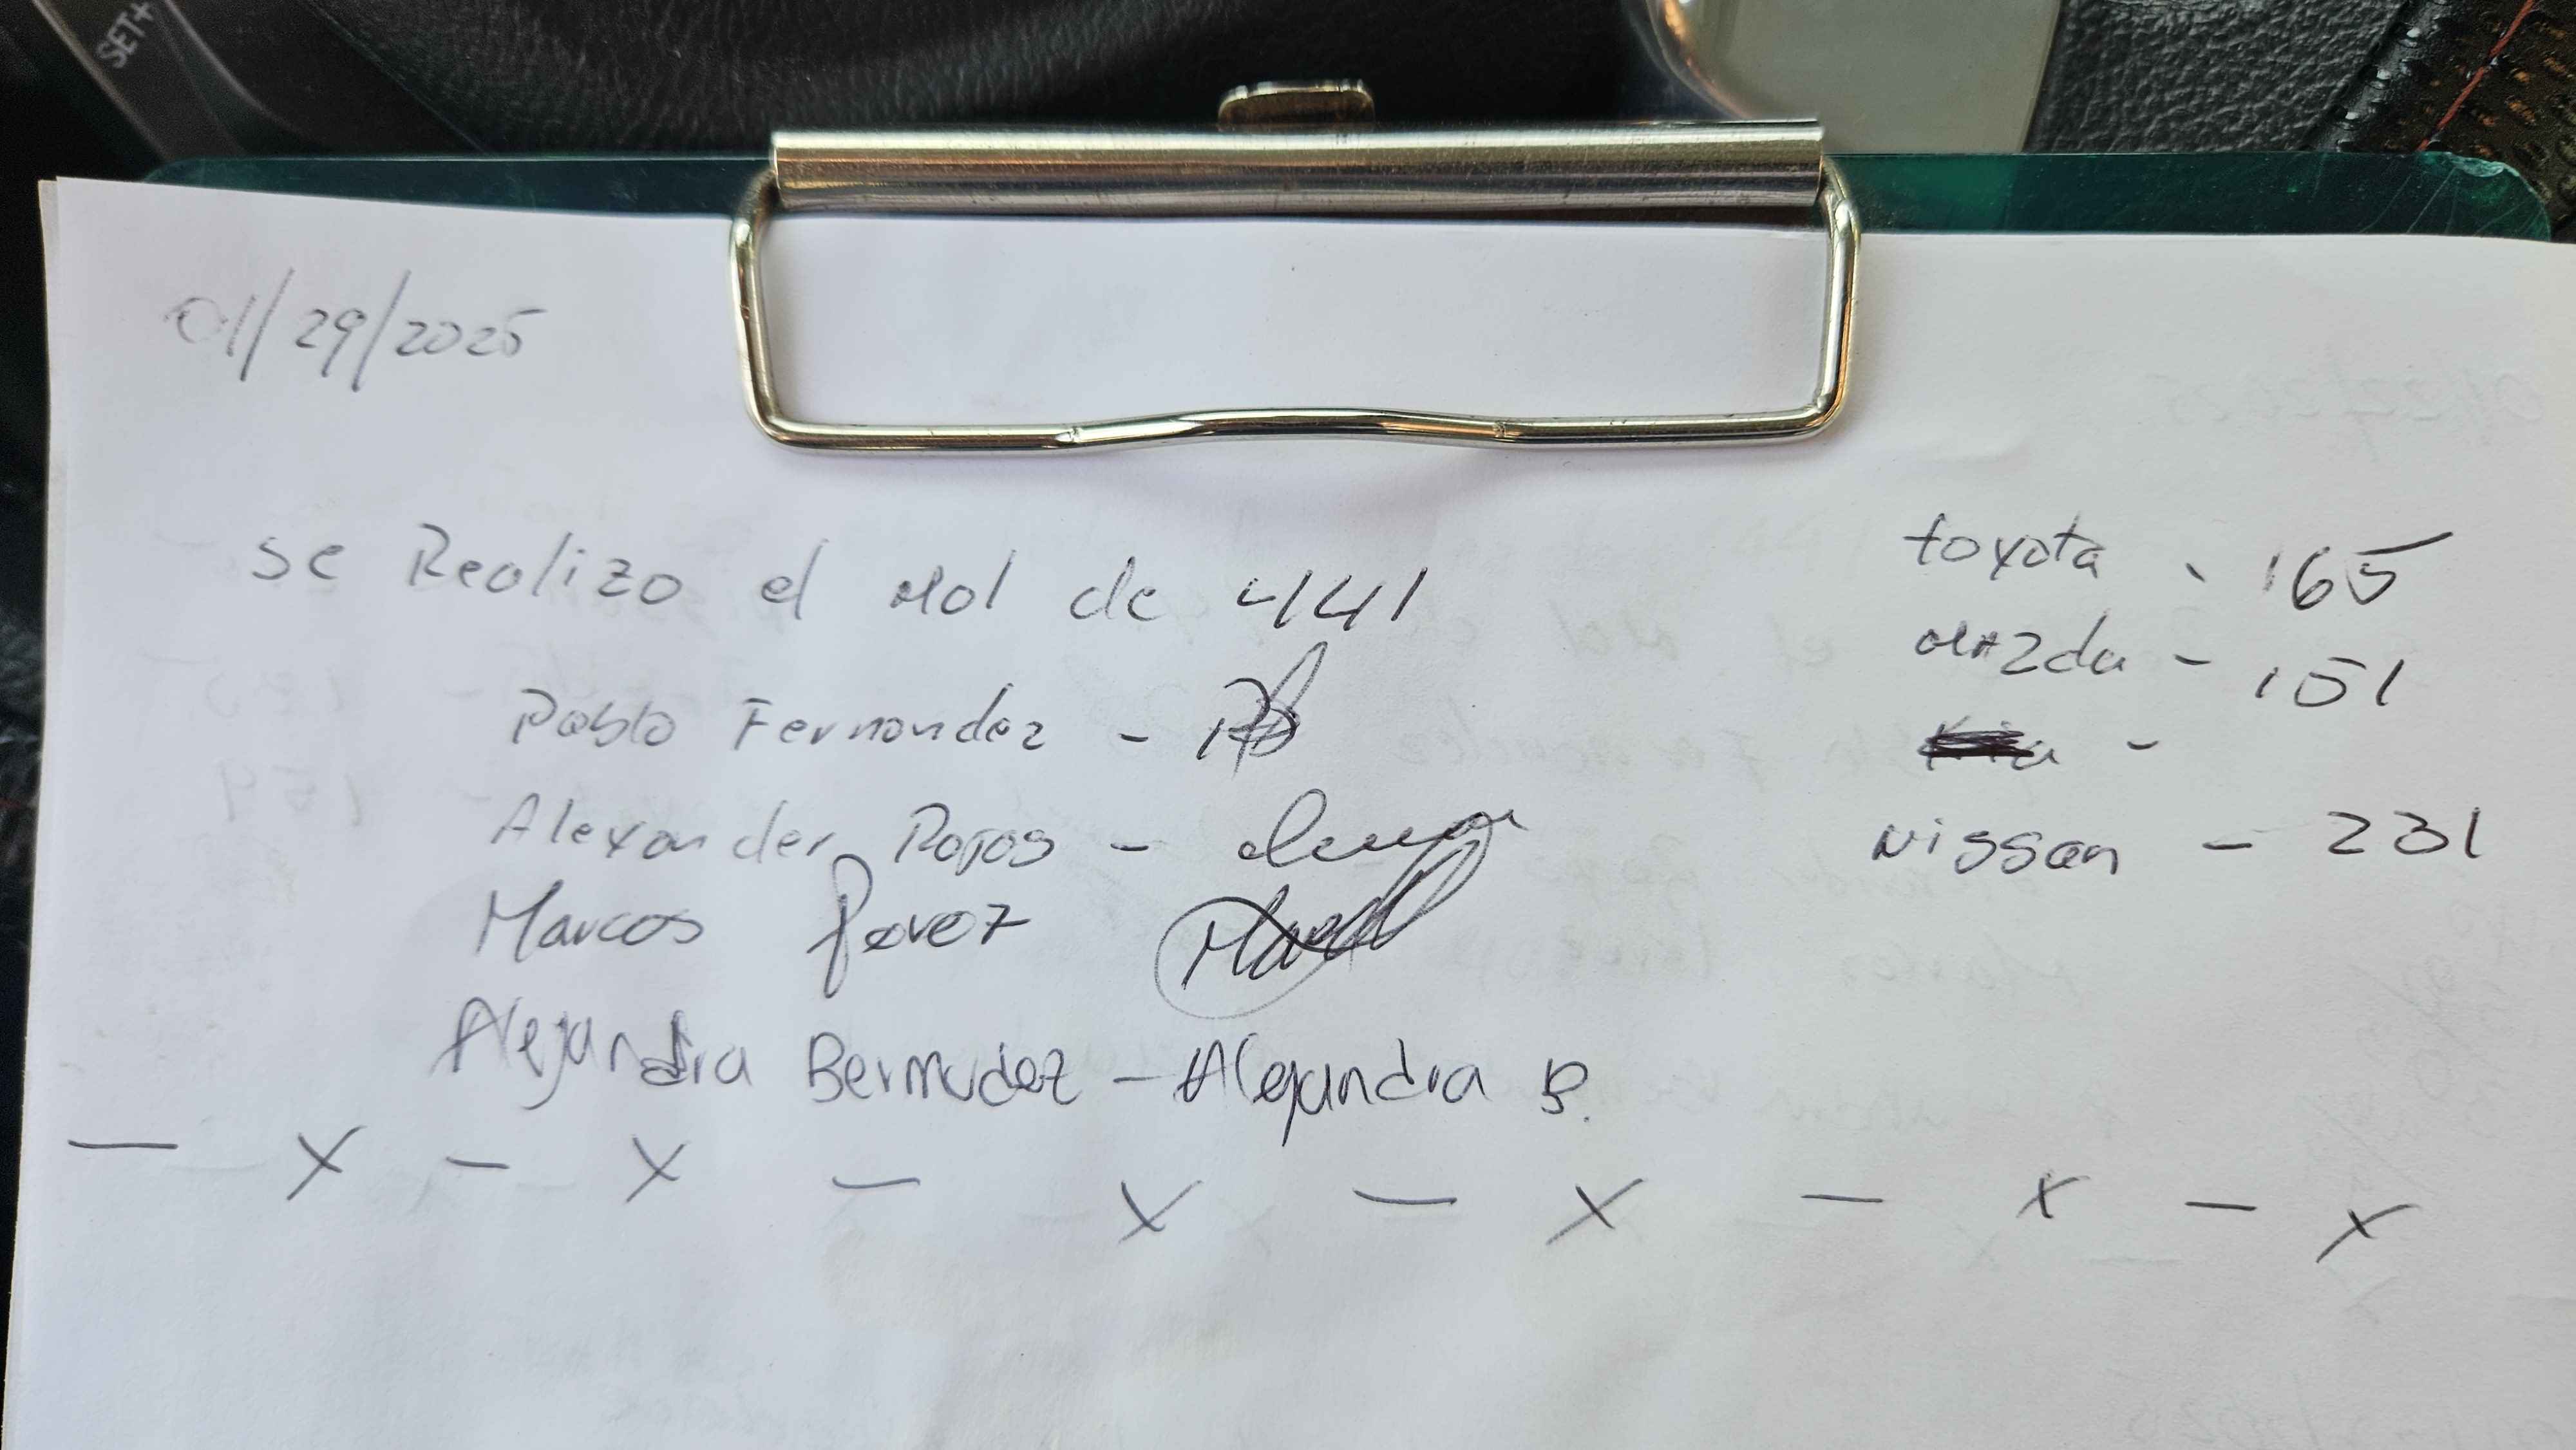 SET+
01/29/2025
se Realizo el Mol de 441
Pablo Fernandez -
Alexander Rojas -
Marcos Perez
Alejandra Bermudez - Alejandra B.
— x — x — x — x — x — x
toyota - 165
Mazda - 151
-
Nissan - 231